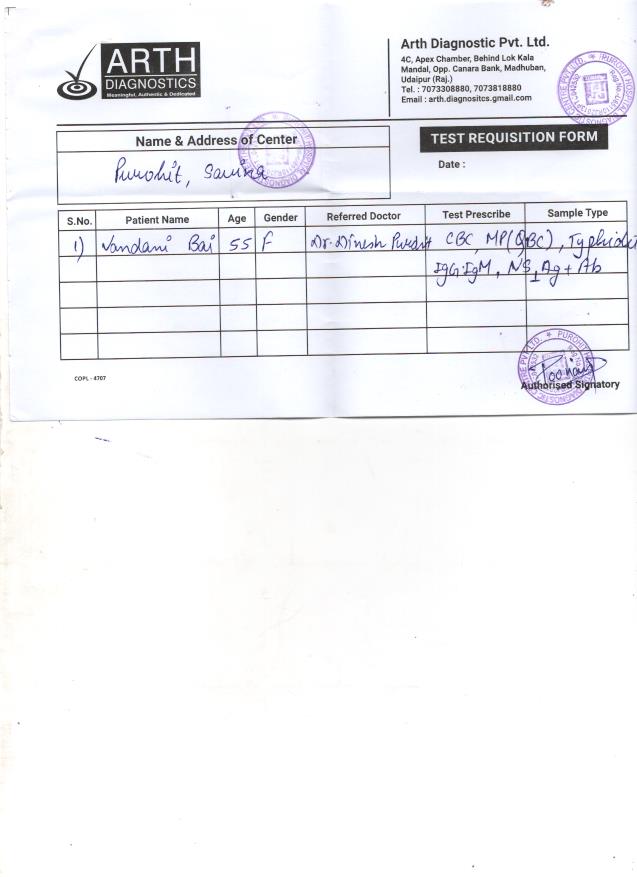 ARTH
DIAGNOSTICS
Meaningful, Authentic & Dedicated
Arth Diagnostic Pvt. Ltd.
4C, Apex Chamber, Behind Lok Kala
Mandal, Opp. Canara Bank, Madhuban,
Udaipur (Raj.)
Tel. : 7073308880, 7073818880
Email : arth.diagnositcs.gmail.com
Name & Address of Center
TEST REQUISITION FORM
Purohit, Savina
Date :
S.No. Patient Name Age Gender Referred Doctor Test Prescribe Sample Type
1) Nandani Bai 55 F Dr. Dinesh Purohit CBC, MP(QBC), Typhidot
IgG IgM, NS1 Ag + Ab
COPL - 4707
Authorised Signatory